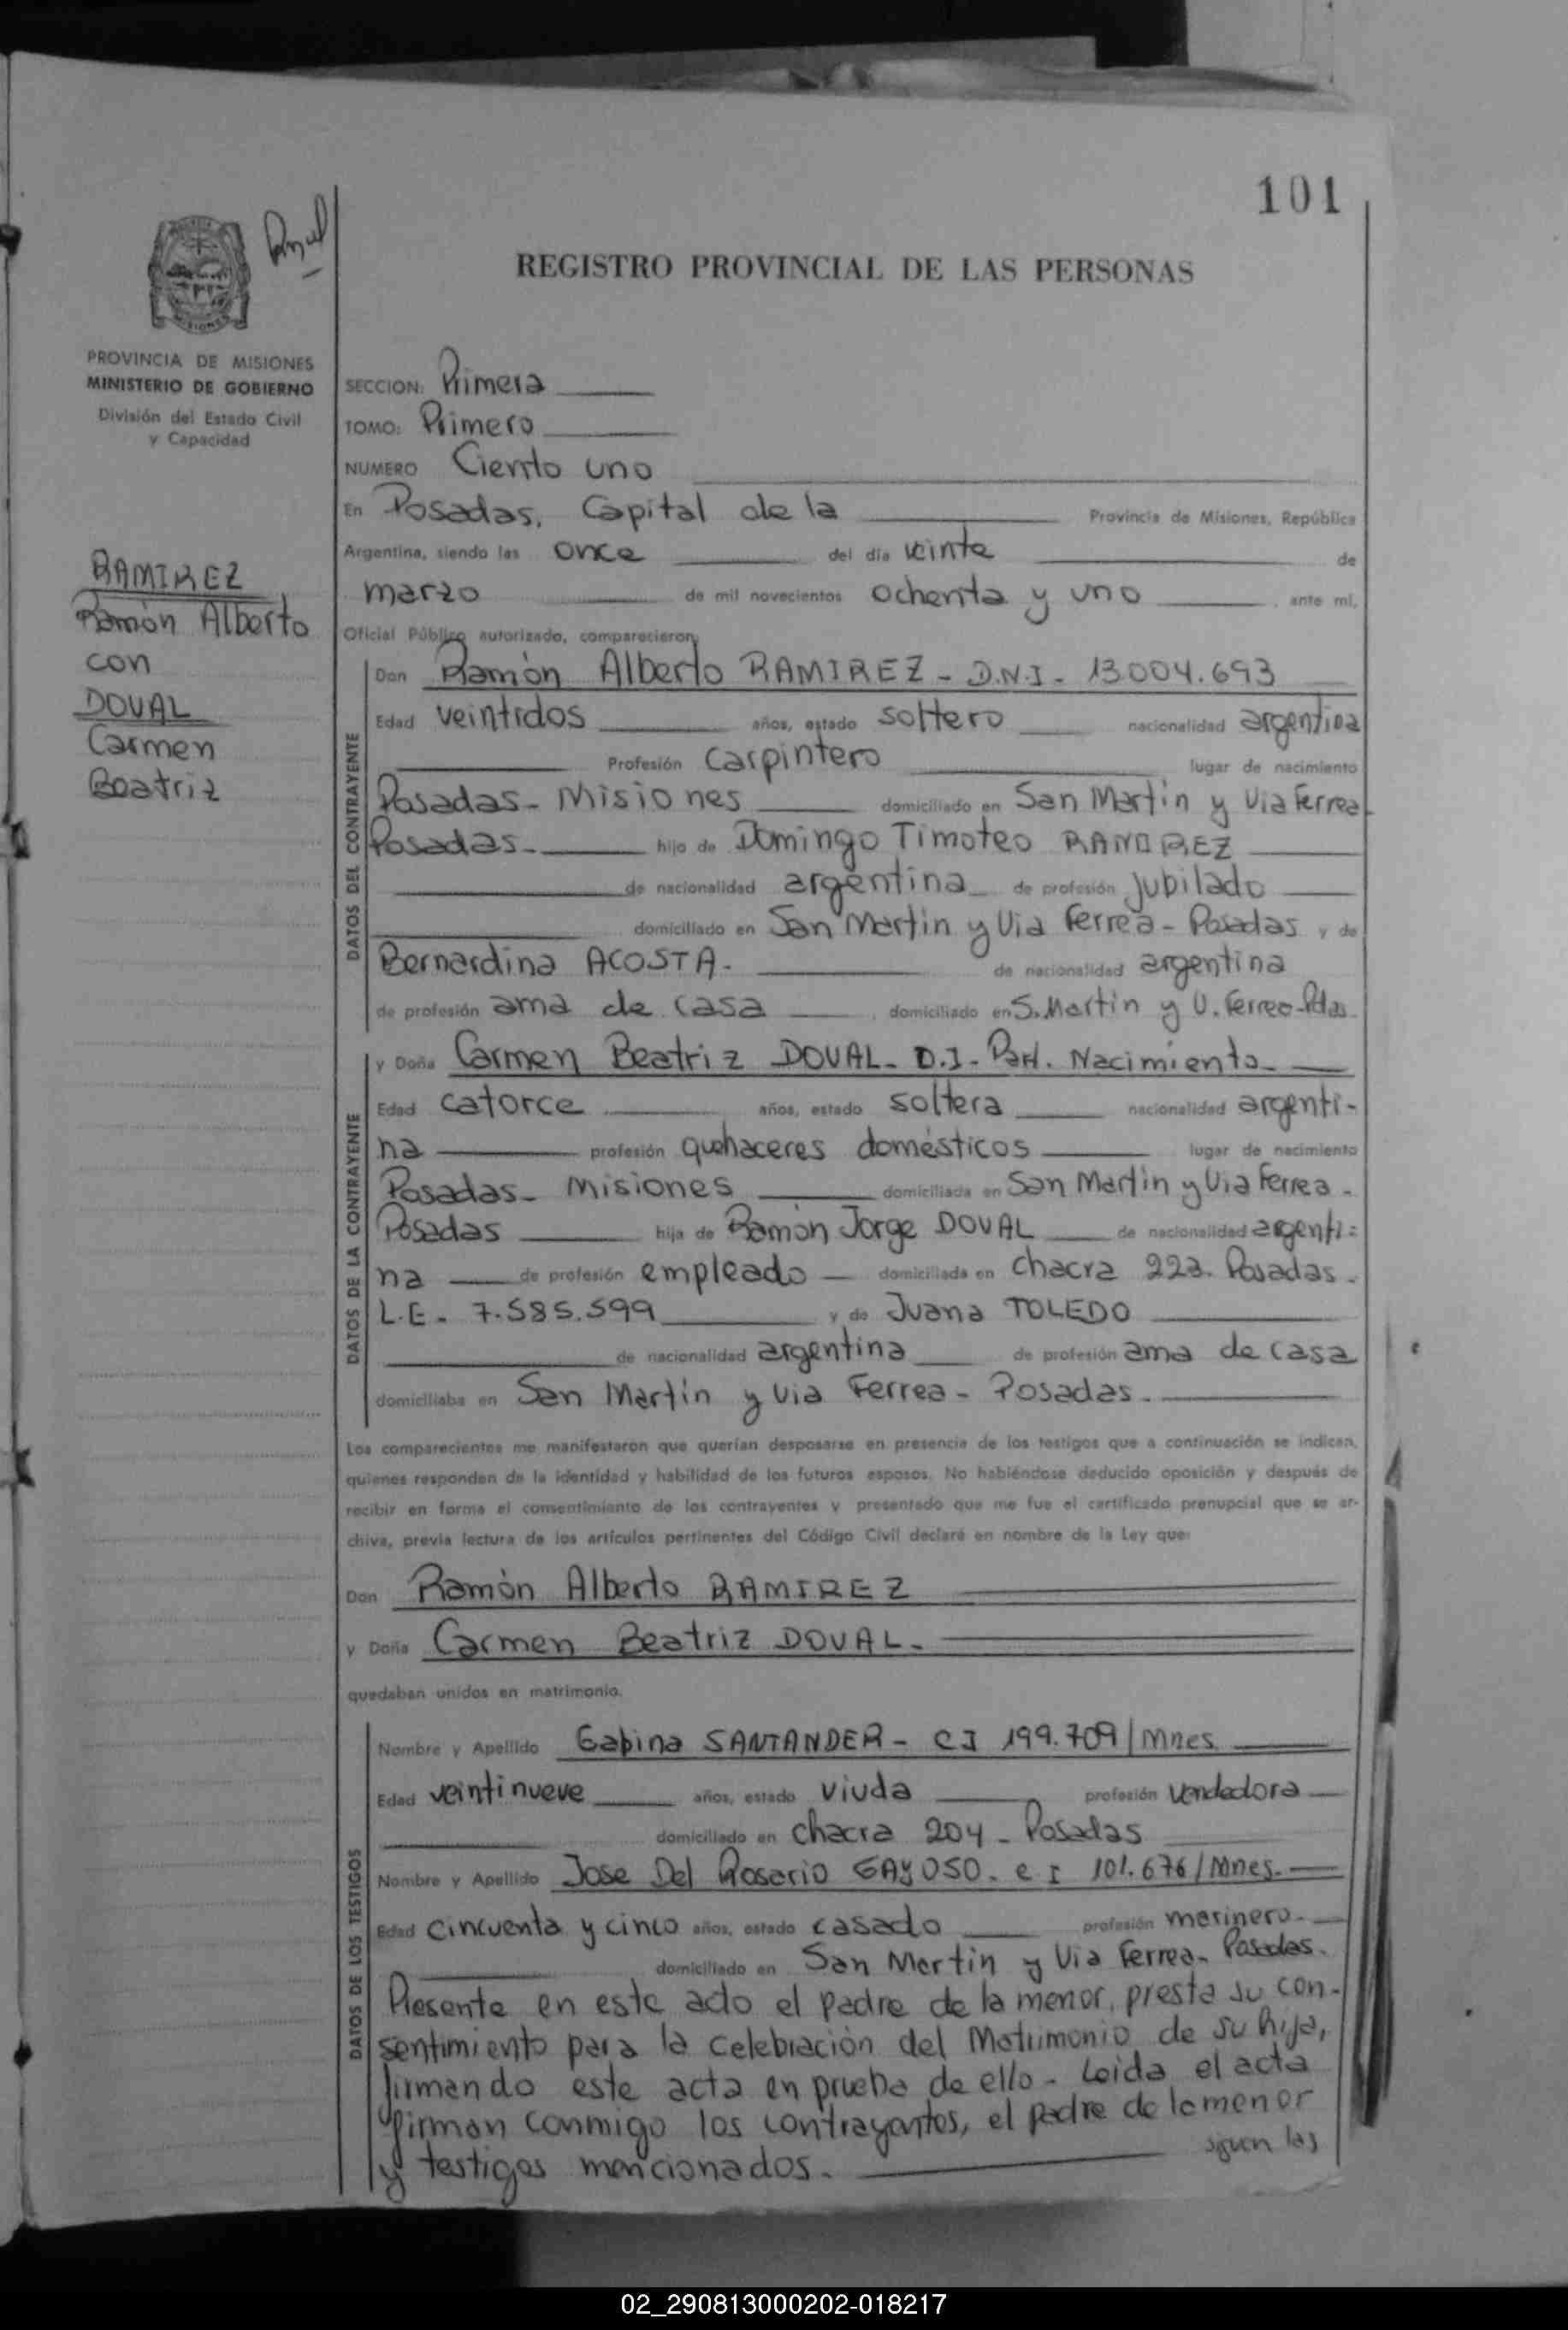 101
REGISTRO PROVINCIAL DE LAS PERSONAS
MISIONES
PROVINCIA DE MISIONES
MINISTERIO DE GOBIERNO
División del Estado Civil
y Capacidad
RAMIREZ
Ramón Alberto
con
DOVAL
Carmen
Beatriz
SECCION: Primera
TOMO: Primero
NUMERO Ciento uno
En Posadas, Capital de la Provincia de Misiones, República
Argentina, siendo las once del día veinte de
marzo de mil novecientos ochenta y uno, ante mí,
Oficial Público autorizado, comparecieron:
DATOS DEL CONTRAYENTE
Don Ramón Alberto RAMIREZ - D.N.I - 13.004.693
Edad veintidos años, estado soltero nacionalidad argentina
Profesión Carpintero lugar de nacimiento
Posadas - Misiones domiciliado en San Martín y Via Ferrea
Posadas.- hijo de Domingo Timoteo RAMIREZ
de nacionalidad argentina de profesión jubilado
domiciliado en San Martin y Via Ferrea - Posadas y de
Bernardina ACOSTA.- de nacionalidad argentina
de profesión ama de casa, domiciliado en S. Martin y V. Ferrea - Pdas.
DATOS DE LA CONTRAYENTE
y Doña Carmen Beatriz DOVAL - D.I - Part. Nacimiento
Edad catorce años, estado soltera nacionalidad argenti-
na profesión quehaceres domésticos lugar de nacimiento
Posadas - Misiones domiciliada en San Martin y Via Ferrea -
Posadas hija de Ramón Jorge DOVAL de nacionalidad argenti=
na de profesión empleado domiciliada en chacra 223. Posadas.
L.E - 7.585.599 y de Juana TOLEDO
de nacionalidad argentina de profesión ama de casa
domiciliaba en San Martin y Via Ferrea - Posadas.
Los comparecientes me manifestaron que querían desposarse en presencia de los testigos que a continuación se indican,
quienes responden de la identidad y habilidad de los futuros esposos. No habiéndose deducido oposición y después de
recibir en forma el consentimiento de los contrayentes y presentado que me fue el certificado prenupcial que se ar-
chiva, previa lectura de los artículos pertinentes del Código Civil declaré en nombre de la Ley que:
Don Ramón Alberto RAMIREZ
y Doña Carmen Beatriz DOVAL.
quedaban unidos en matrimonio.
DATOS DE LOS TESTIGOS
Nombre y Apellido Gabina SANTANDER - CI 199.709/Mnes.
Edad veintinueve años, estado viuda profesión vendedora
domiciliado en chacra 204 - Posadas
Nombre y Apellido Jose Del Rosario GAYOSO - C.I 101.676/Mnes.
Edad cincuenta y cinco años, estado casado profesión marinero.
domiciliado en San Martin y Via Ferrea - Posadas.
Presente en este acto el padre de la menor, presta su con-
sentimiento para la celebración del Matrimonio de su hija,
firmando este acta en prueba de ello - Leida el acta
firman conmigo los contrayentes, el padre de la menor
y testigos mencionados. siguen las
02_290813000202-018217